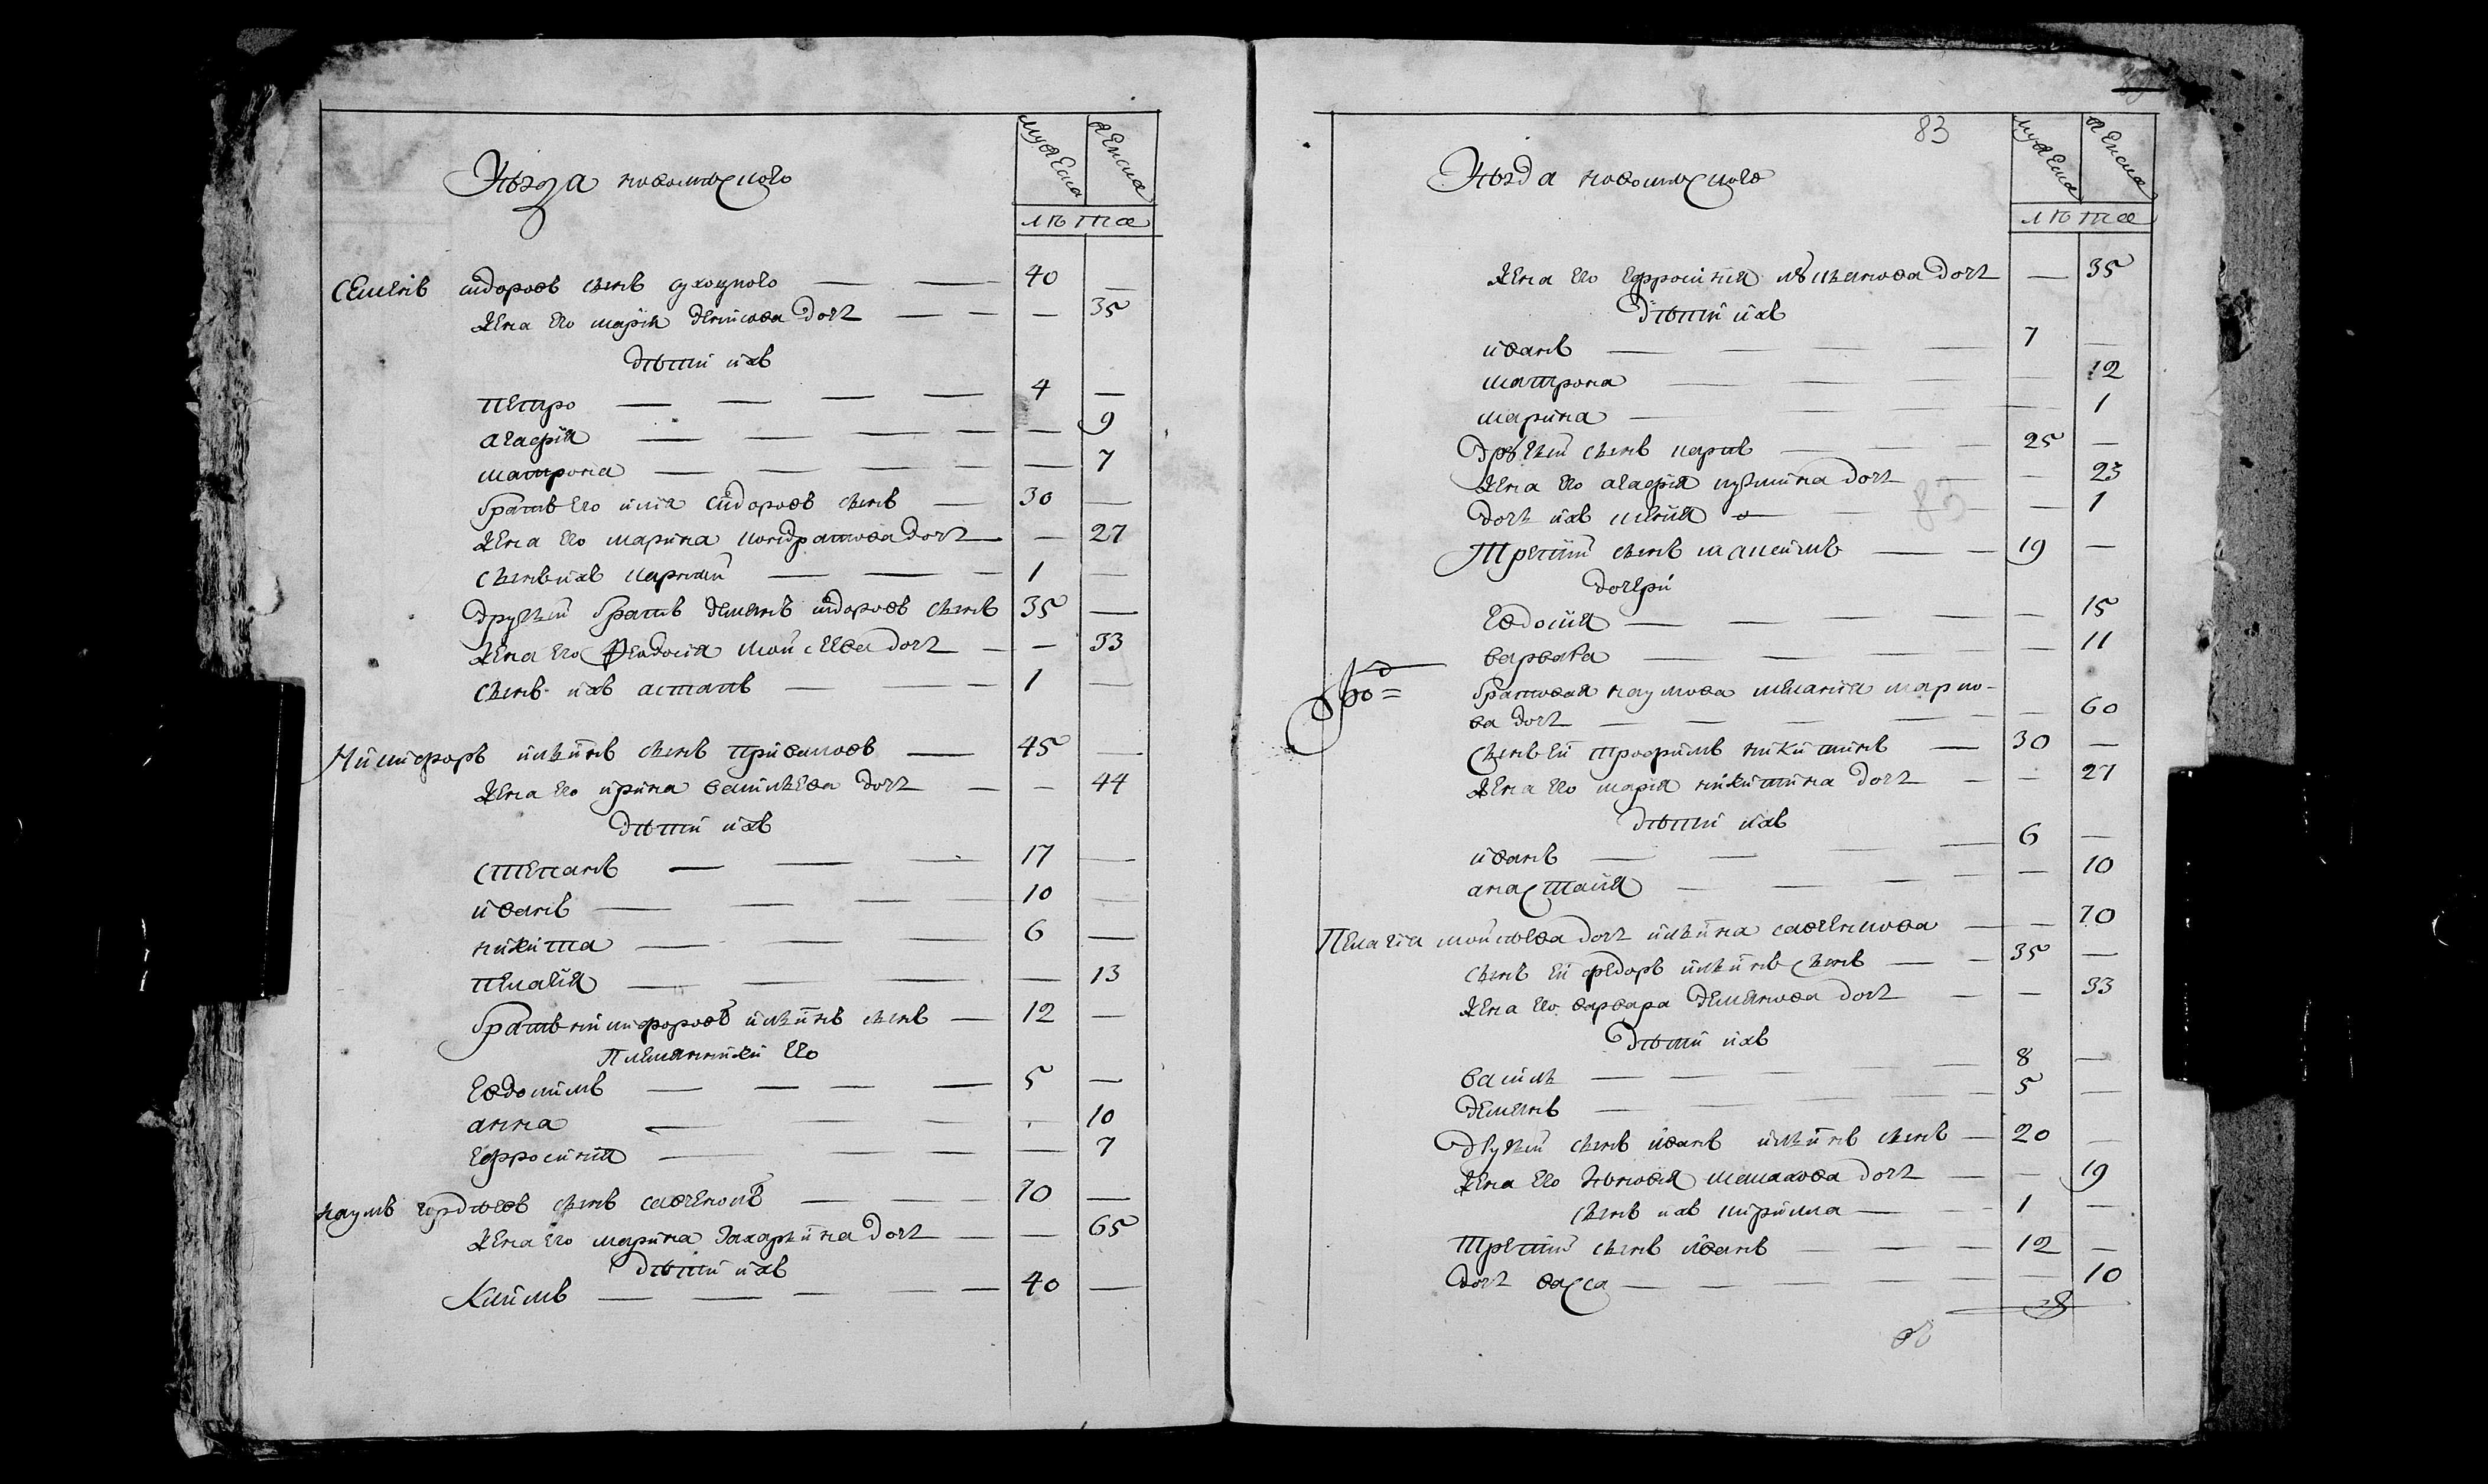 Уѣзда новомѣскаго
мужеска
женска
лѣта
Семенъ сидоровъ сынъ сухоцкого — — 40 —
жена его марія денисова дочь — — — 35
дѣти ихъ
петро — — — — 4 —
агафія — — — — — 9
матрона — — — — — 7
братъ его илія сидоровъ сынъ — 30 —
жена его марина кондратова дочь — — 27
сынъ ихъ карней — — — 1 —
другий братъ демянъ сидоровъ сынъ 35 —
жена его феодосія мойсеева дочь — — 33
сынъ ихъ астапъ — — — 1 —
Никифоръ илѣинъ сынъ приваловъ — 45 —
жена его ирина василѣева дочь — — 44
дѣти ихъ
степанъ — — — 17 —
иванъ — — — — 10 —
никита — — — — 6 —
пелагія — — — — — 13
братъ никифоровъ илѣинъ сынъ — 12 —
племянники его
евдокимъ — — — — 5 —
анна — — — — — 10
ефросинія — — — — 7
наумъ гордѣевъ сынъ савченокъ — — — 70 —
жена его марина захарѣина дочь — — 65
дѣти ихъ
климъ — — — — — 40 —
83
Уѣзда новомѣскаго
мужеска
женска
лѣта
жена его ефросинія лукянова дочь — 35
дѣти ихъ
иванъ — — — — 7 —
матрона — — — — 12
марина — — — — 1
другий сынъ карпъ — — — 25 —
жена его агафія кузмина дочь — — 23
дочь ихъ — — — — 1
третий сынъ максимъ — — 19 —
дочери
евдокія — — — — — 15
варвара — — — — — 11
братовая наумова меланія марко-
ва дочь — — — — — 60
сынъ ей трофимъ никитинъ — 30 —
жена его марія никитина дочь — — 27
дѣти ихъ
иванъ — — — — 6 —
анастасія — — — — — 10
Пелагія мойсѣева дочь илѣина савченкова — — 70
сынъ ей федоръ илѣинъ сынъ — — 35 —
жена его варвара демянова дочь — — 33
дѣти ихъ
василь — — — — 8 —
демянъ — — — — 5 —
другий сынъ иванъ илѣинъ сынъ — 20 —
жена его зѣновія дочь — — 19
сынъ ихъ кирилла — — — 1 —
третий сынъ иванъ — — — 12 —
дочь васса — — — — — 10